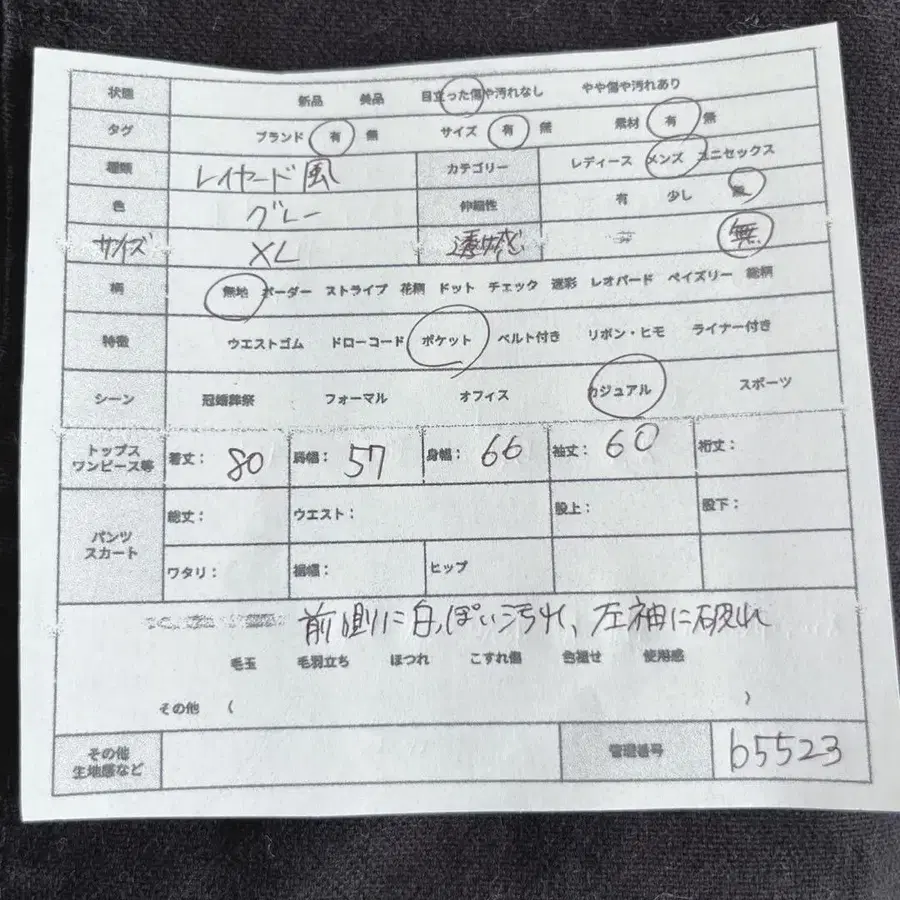 状態 新品 美品 目立った傷や汚れなし やや傷や汚れあり
タグ ブランド 有 無 サイズ 有 無 素材 有 無
種類 レイヤード風 カテゴリー レディース メンズ ユニセックス
色 グレー 伸縮性 有 少し 無
サイズ XL 透け感 無
柄 無地 ボーダー ストライプ 花柄 ドット チェック 迷彩 レオパード ペイズリー 総柄
特徴 ウエストゴム ドローコード ポケット ベルト付き リボン・ヒモ ライナー付き
シーン 冠婚葬祭 フォーマル オフィス カジュアル スポーツ
トップス ワンピース等 着丈: 80 肩幅: 57 身幅: 66 袖丈: 60 裄丈:
パンツ スカート 総丈: ウエスト: 股上: 股下:
ワタリ: 裾幅: ヒップ
前側に白っぽい汚れ、左袖に破れ
毛玉 毛羽立ち ほつれ こすれ傷 色褪せ 使用感
その他 ( )
その他 生地感など 管理番号 b5523